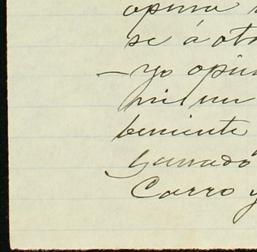 opina
se á otr
— yo opin
mil un
beniente
Ganado
Carro y